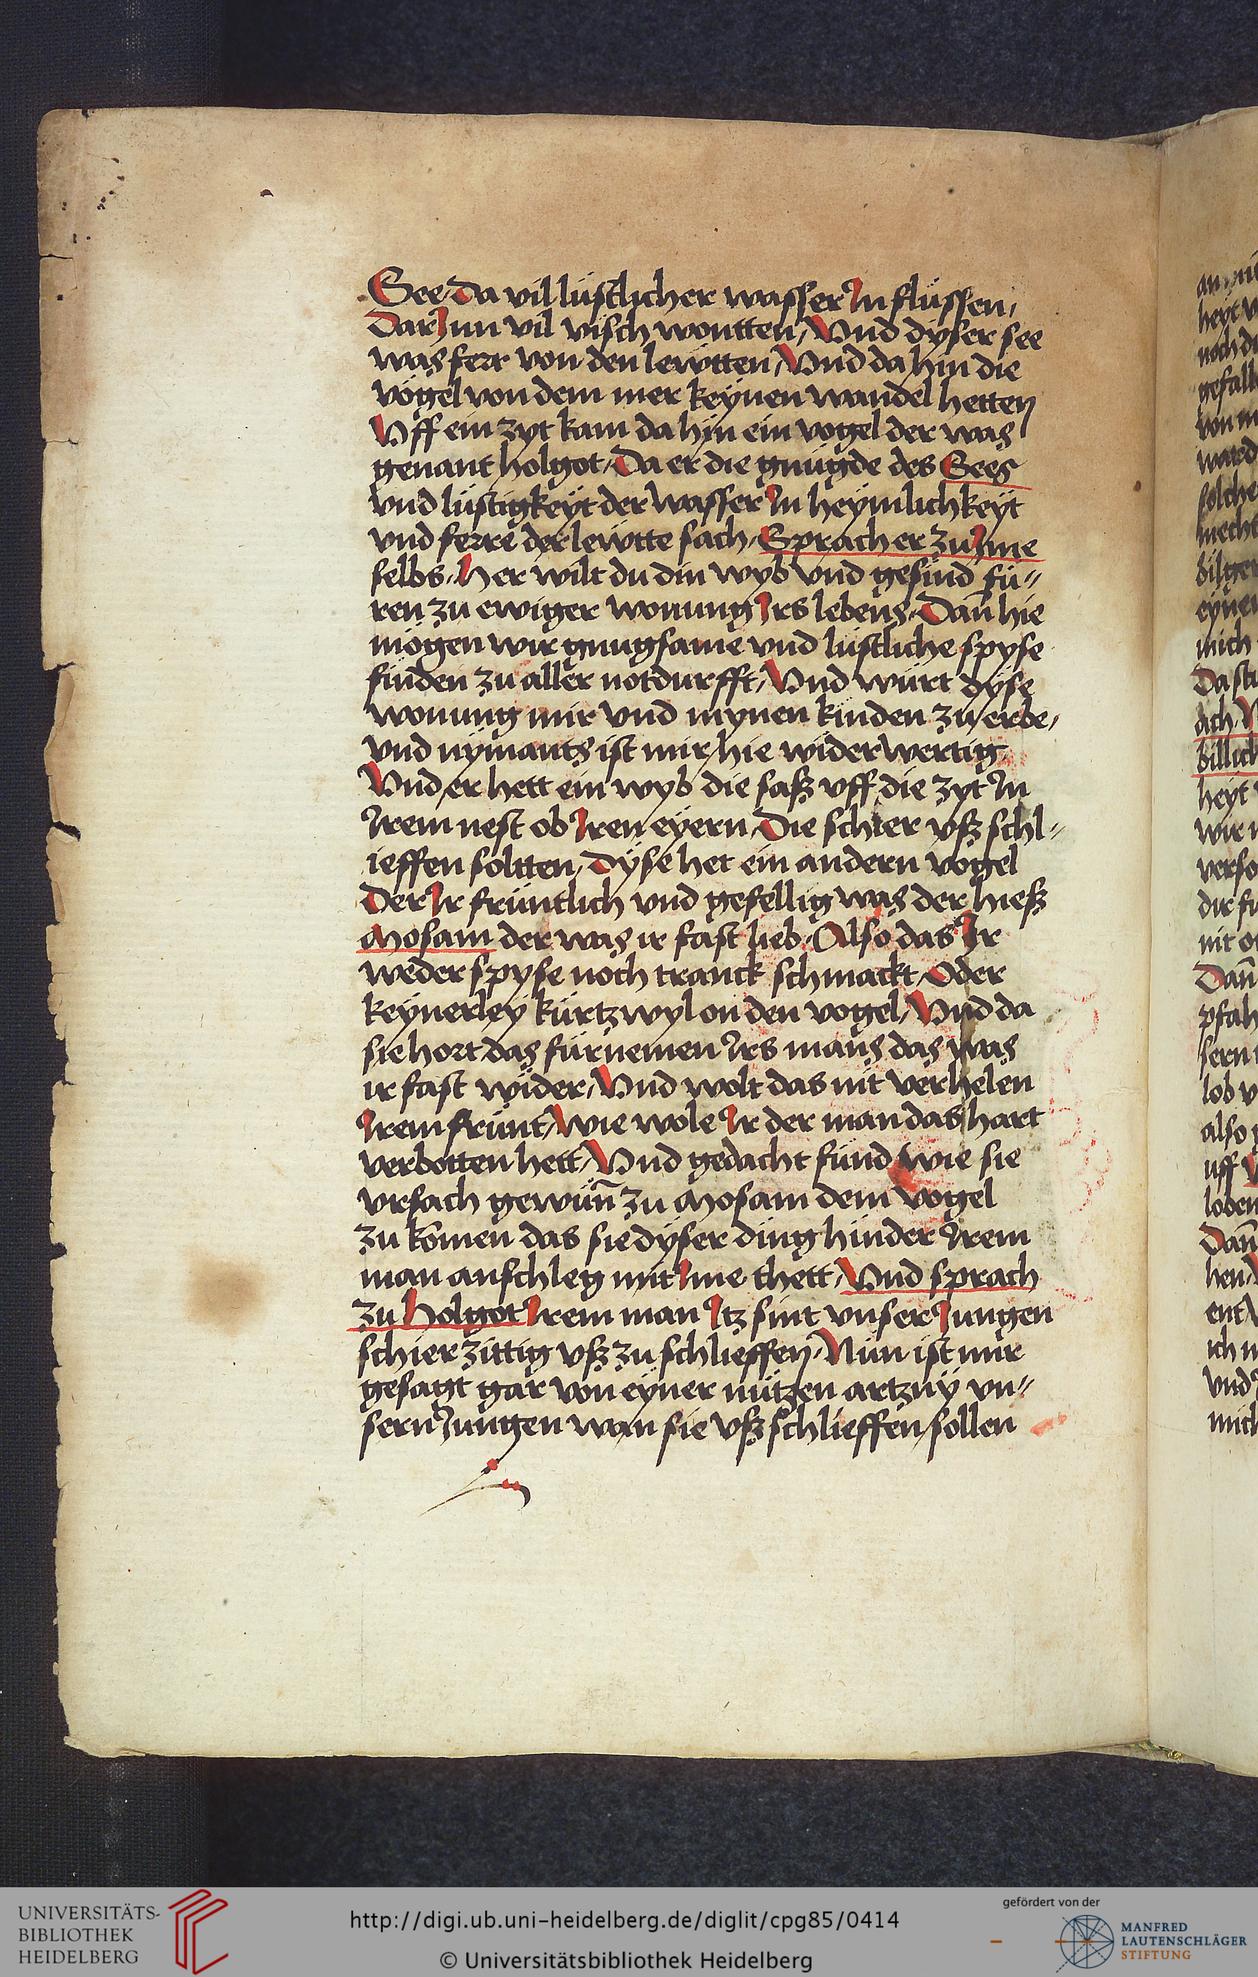 See / Da vil lüstlicher wasser In flüssen /
Dar Inn vil visch wontten / Vnd dyser see
was ferr von den lewtten / Vnd da hin die
vögel von dem mer keynen wandel hetten
Vff ein zyt kam da hin ein vogel der was
genant holgot / Da er die gnügde des Sees
vnd lüstigkeyt der wasser In heymlichkeyt
vnd ferre der lewtte sach / Sprach er zu Ime
selbs / Her wilt du din wyb vnd gesind fü〃
ren zu ewiger wonung Irs lebens / Dañ hie
mögen wir gnugsame vnd lüstliche spyse
finden zu aller notdurfft / Vnd würt dyse
wonung mir vnd mynen kinden zu erbe /
vnd nymants ist mir hie widerwertig
Vnd er hett ein wyb die saß vff die zyt In
Irem nest ob Iren eyern Die schier vß schl〃
ieffen soltten / Dyse het ein andern vogel
Der Ir früntlich vnd gefellig was der hieß
Mosam der was ir fast lieb / Also das Ir
weder spyse noch tranck schmackt Oder
keynerley kürtzwyl on den vogel / Vnd da
sie hort das fürnemen Irs mans das was
ir fast wider / Vnd wolt das nit verhelen
Irem frünt / Wie wole Ir der man das hart
verbotten hett / Vnd gedacht fünd wie sie
vrsach gewün̄ zu Mosam dem vogel
zu komen das sie dyser ding hinder Irem
man anschleg mit Ime thett / Vnd sprach
zu Holgot Irem man Itz sint vnser Jungen
schier zittig vß zu schlieffen / Nün ist mir
gesagt gar von eyner nützen artzny vn〃
sern Jungen wan sie vß schlieffen sollen
UNIVERSITÄTS-
BIBLIOTHEK
HEIDELBERG
http://digi.ub.uni-heidelberg.de/diglit/cpg85/0414
© Universitätsbibliothek Heidelberg
gefördert von der
MANFRED
LAUTENSCHLÄGER
STIFTUNG